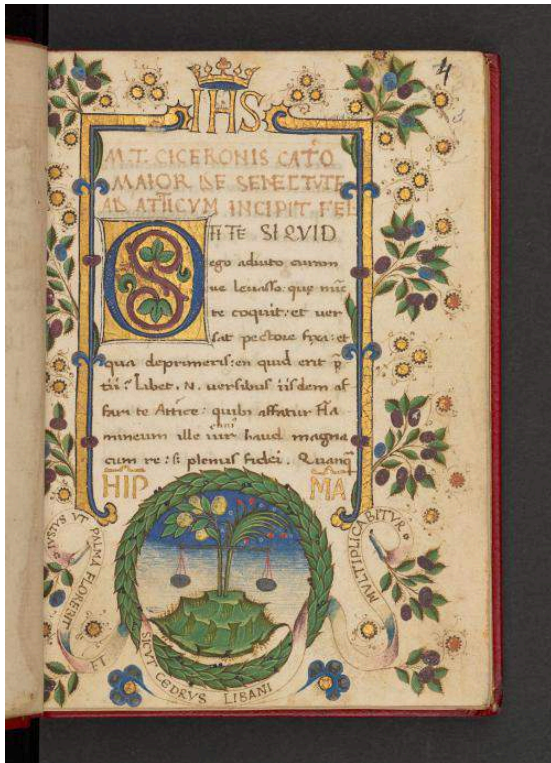 4
IHS
M.T. CICERONIS CATO
MAIOR DE SENECTVTE
AD ATTICVM INCIPIT FEL
O TITE SI QVID
ego adiuto curam
ue leuasso: quę nūc
te coquit: et uer
sat pectore fixa: et
qua deprimeris: en quid erit p̄
tii? Libet. N. uersibus iisdem af
fari te Attice: quibus affatur Fla
mineum ille uir haud magna
cum re: s; plenus fidei. Quanq̄
HIP MA
IVSTVS VT PALMA FLOREBIT ET
SICVT CEDRVS LIBANI
MVLTIPLICABITVR